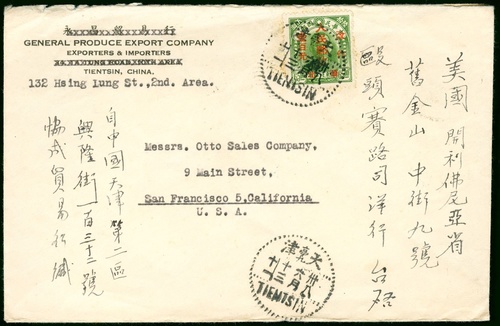 GENERAL PRODUCE EXPORT COMPANY
EXPORTERS & IMPORTERS
TIENTSIN, CHINA.
132 Hsing Lung St.,2nd. Area.
Messrs. Otto Sales Company,
9 Main Street,
San Francisco 5,California
U. S. A.
美國 開利佛尼亞省
舊金山 中街九號
毆頭賽路司洋行 台啓
自中國天津第二區
興隆街一百三十二號
協成貿易行緘
TIENTSIN
津 天
TIENTSIN